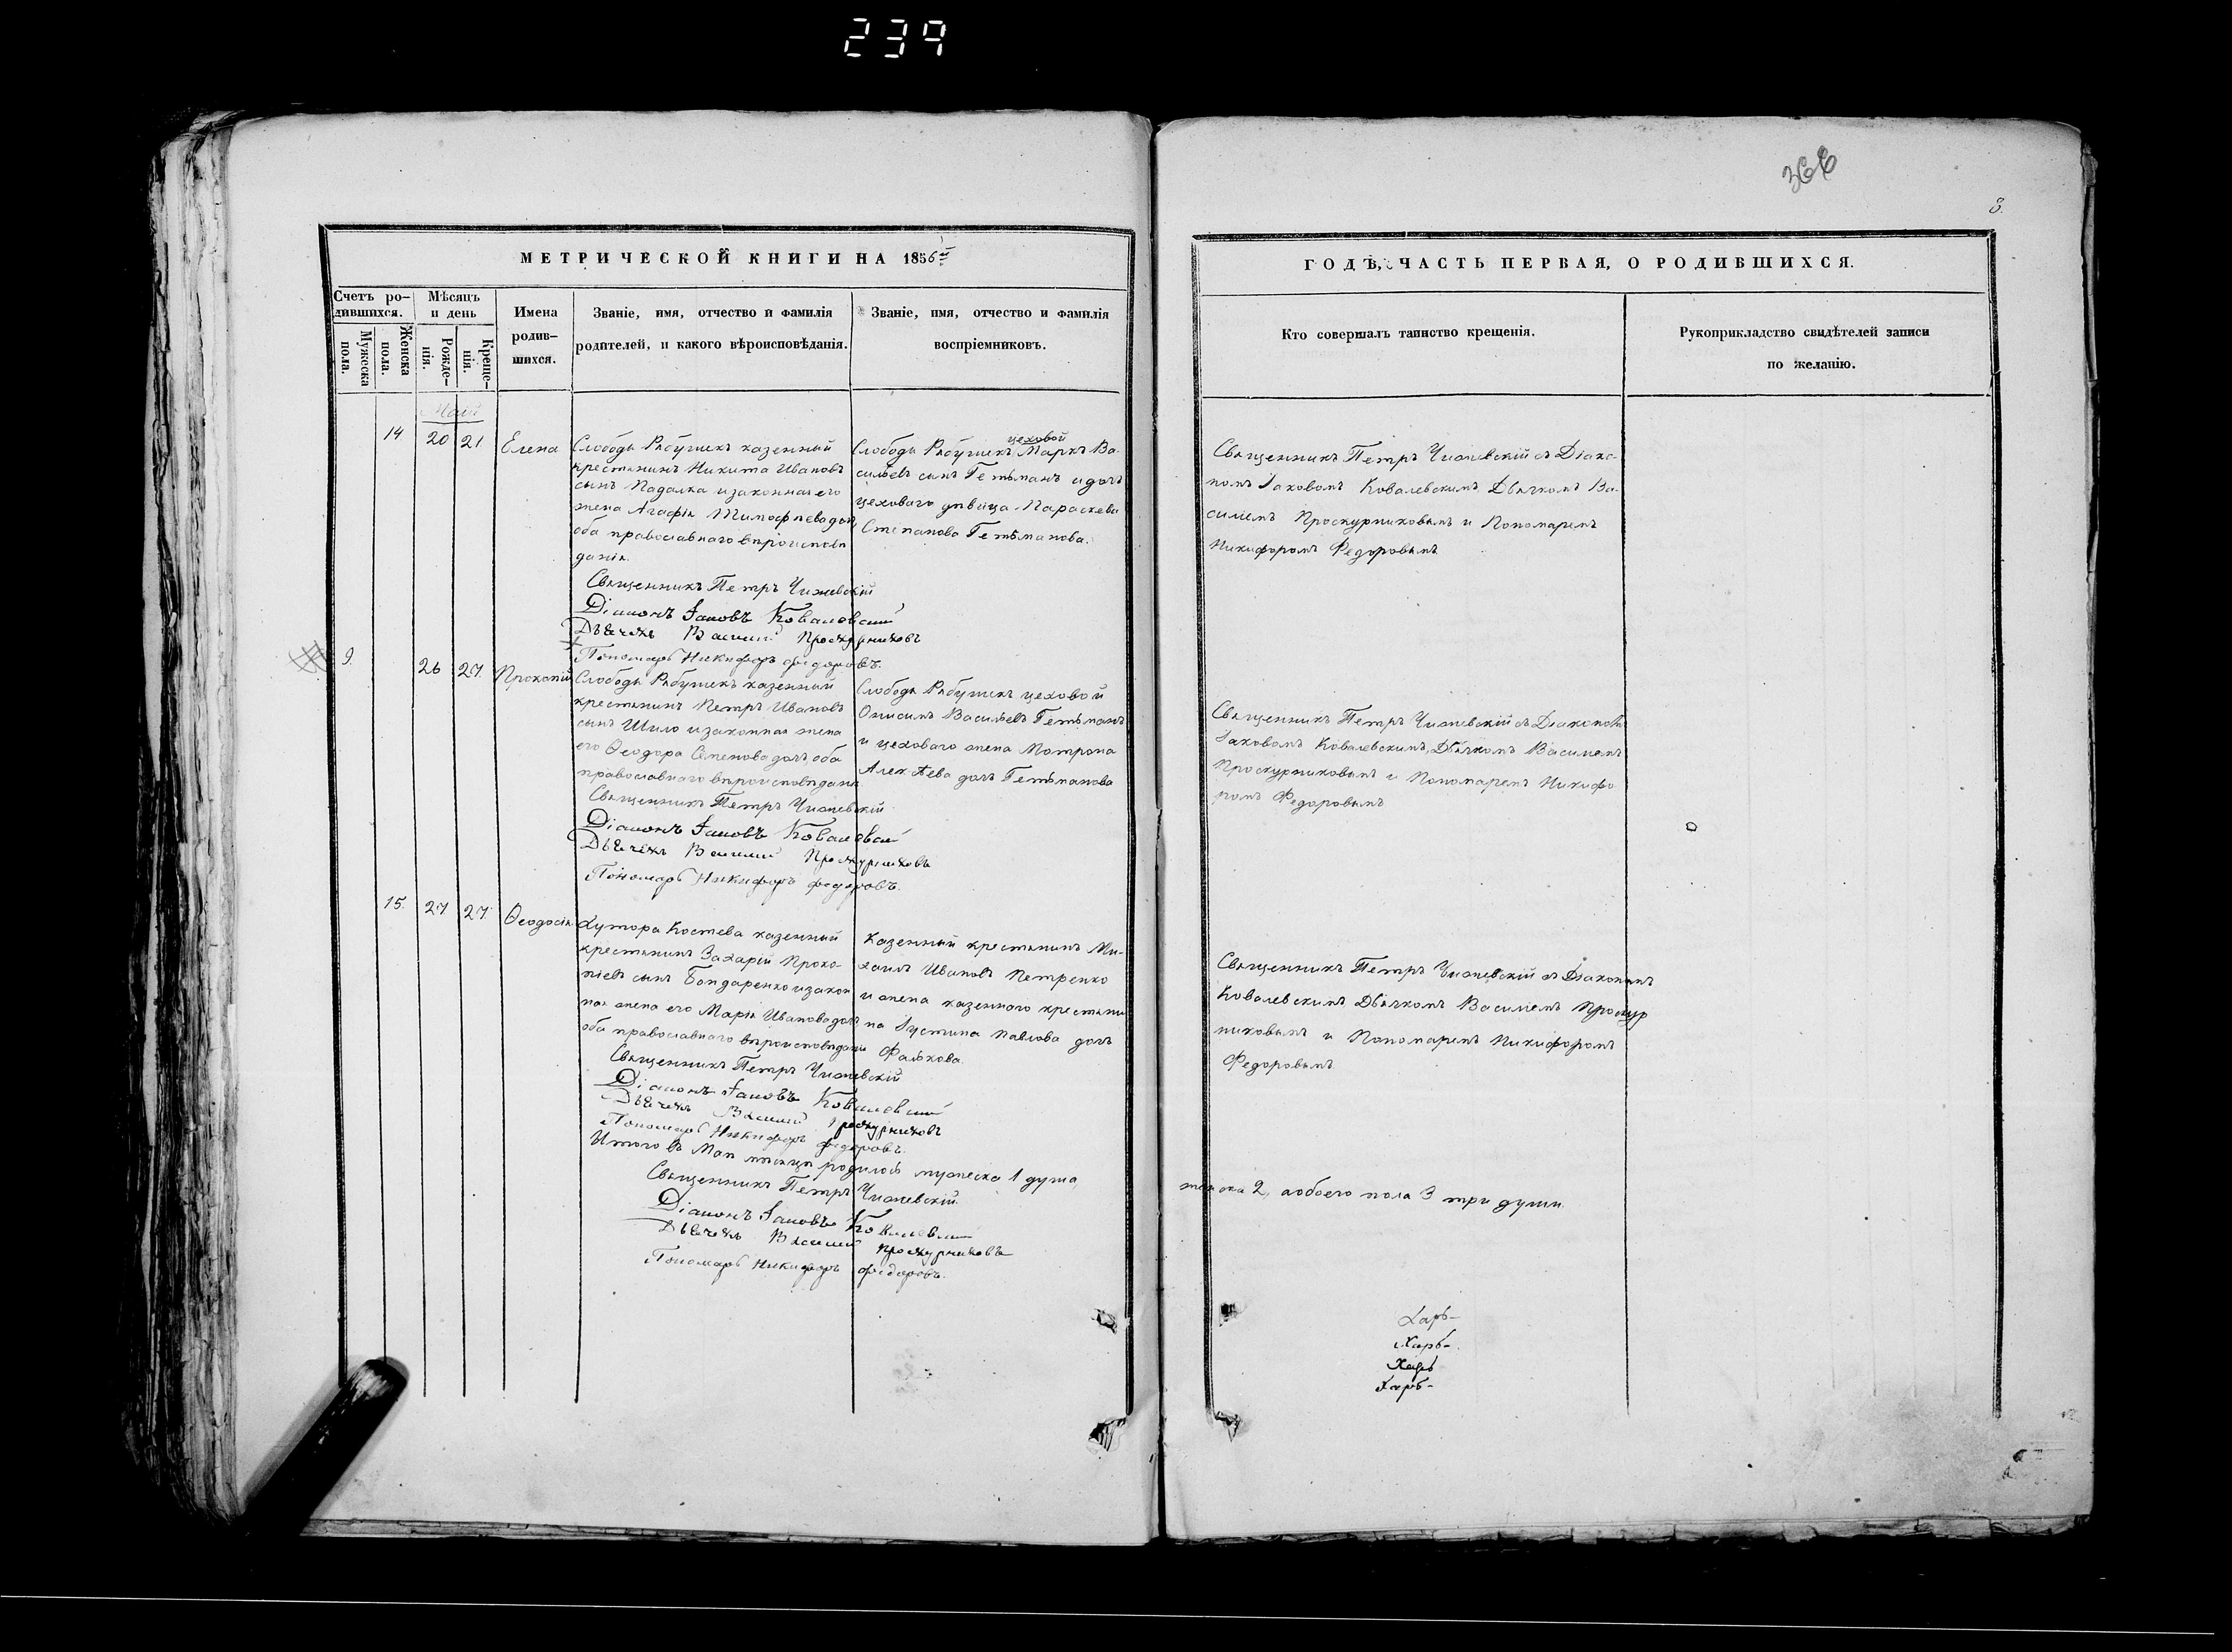 239
366
3.
МЕТРИЧЕСКОЙ КНИГИ НА 1856й
Счетъ ро-
дившихся.
Мужеска
пола.
Женска
пола.
Мѣсяцъ
и день
Рожде-
нія.
Креще-
нія.
Имена
родив-
шихся.
Званіе, имя, отчество и фамилія
родителей, и какого вѣроисповѣданія.
Званіе, имя, отчество и фамилія
воспріемниковъ.
Май
14 20 21 Елена
Слободы Рябушекъ казенный
крестьянинъ Никита Ивановъ
сынъ Падалка и законная его
жена Агафія Тимофѣева доч
оба православнаго вѣроисповѣ
данія.
цеховой
Слободы Рябушекъ Маркъ Ва-
сильевъ сынъ Гетьманъ и доч
цеховаго дѣвица Параскева
Степанова Гетьманова.
Священникъ Петръ Чижевскій
Діаконъ Іаковъ Ковалевскій
Дьячекъ Василій Проскурниковъ
Пономарь Никифоръ Федоровъ.
9. 26 27. Прокопій
Слободы Рябушекъ казенный
крестьянинъ Петръ Ивановъ
сынъ Шило и законная жена
его Ѳеодора Семенова доч. оба
православнаго вѣроисповѣданія
Слободы Рябушекъ цеховой
Онисимъ Васильевъ Гетьманъ
и цеховаго жена Мотрона
Алексѣева доч Гетьманова
Священникъ Петръ Чижевскій
Діаконъ Іаковъ Ковалевскій
Дьячекъ Василій Проскурниковъ
Пономарь Никифоръ Федоровъ.
15. 27 27. Ѳеодосія
Хутора Костева казенный
крестьянинъ Захарій Проко-
піевъ сынъ Бондаренко и закон
ная жена его Марія Иванова доч
оба православнаго вѣроисповѣданія
Казенный крестьянинъ Ми-
хаилъ Ивановъ Петренко
и жена казеннаго крестьяни
на Іустина Павлова доч
Фалькова.
Священникъ Петръ Чижевскій
Діаконъ Іаковъ Ковалевскій
Дьячекъ Василій Проскурниковъ
Пономарь Никифоръ Федоровъ.
Итого въ Маѣ мѣсяцѣ родилось мужеска 1 душа,
Священникъ Петръ Чижевскій.
Діаконъ Іаковъ Ковалевскій
Дьячекъ Василій Проскурниковъ
Пономарь Никифоръ Федоровъ.
ГОДЪ, ЧАСТЬ ПЕРВАЯ, О РОДИВШИХСЯ.
Кто совершалъ таинство крещенія.
Рукоприкладство свидѣтелей записи
по желанію.
Священникъ Петръ Чижевскій съ Діако-
номъ Іаковомъ Ковалевскимъ Дьячкомъ Ва-
силіемъ Проскурниковымъ и Пономаремъ
Никифоромъ Федоровымъ
Священникъ Петръ Чижевскій съ Діакономъ
Іаковомъ Ковалевскимъ, Дьячкомъ Василіемъ
Проскурниковымъ и Пономаремъ Никифо
ромъ Федоровымъ
Священникъ Петръ Чижевскій съ Діакономъ
Ковалевскимъ Дьячкомъ Василіемъ Проскур
никовымъ и Пономаремъ Никифоромъ
Федоровымъ
женска 2, а обоего пола 3 три души.
Харь-
Харь-
Харь
Харь-